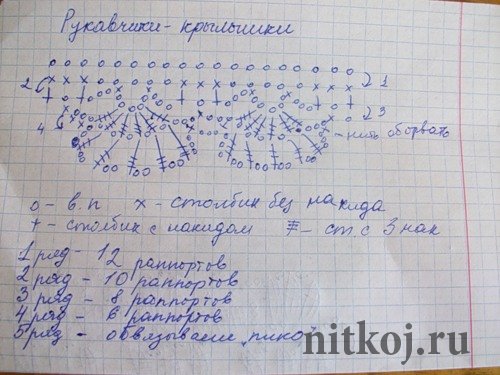 Рукавчики - крылышки
2 1
3
4 - нить оборвать
o - в.п x - столбик без накида
+ - столбик с накидом - ст. с 3 нак
1 ряд - 12 раппортов
2 ряд - 10 раппортов
3 ряд - 8 раппортов
4 ряд - 6 раппортов
5 ряд - обвязываем "пико"
nitkoj.ru